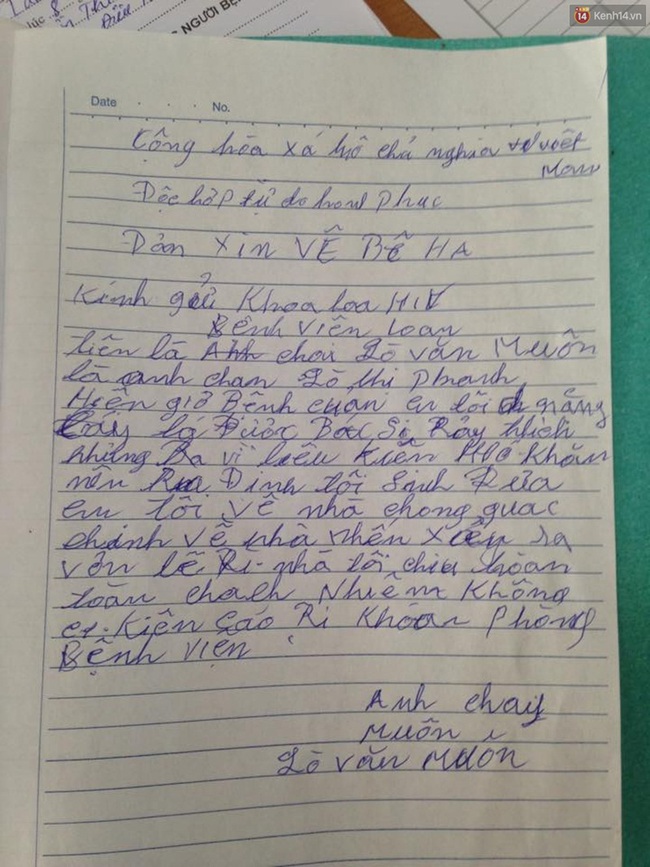 Kenh14.vn
NGƯỜI BỆ
Date . . . No.
Cộng hòa xá hô chủ nghĩa việt
Man
Độc hớp tử do hanh Phục
Đản XIN VỄ BỄ HA
Kính gửi Khoa loa HIV
Bênh viên loan
tiên là Anh chai Lò văn Muôn
là anh chan Lò thi phanh
Hiên giờ Bênh cuan em tôi năng
lăy là Được Bac Si Rảy thich
nhửng Ra vì liêu Kiên Khăn
nên Rua Đinh tôi Sinh Đưa
em tôi vê nhà chong quac
chinh vê nhà nhên xảy ra
vơn lê Ri nhà tôi chiu hoan
toan chach Nhiêm Không
et Kiên Cáo Ri Khoan Phong
Bệnh viện
Anh chay
Muôn
Lò văn Muôn